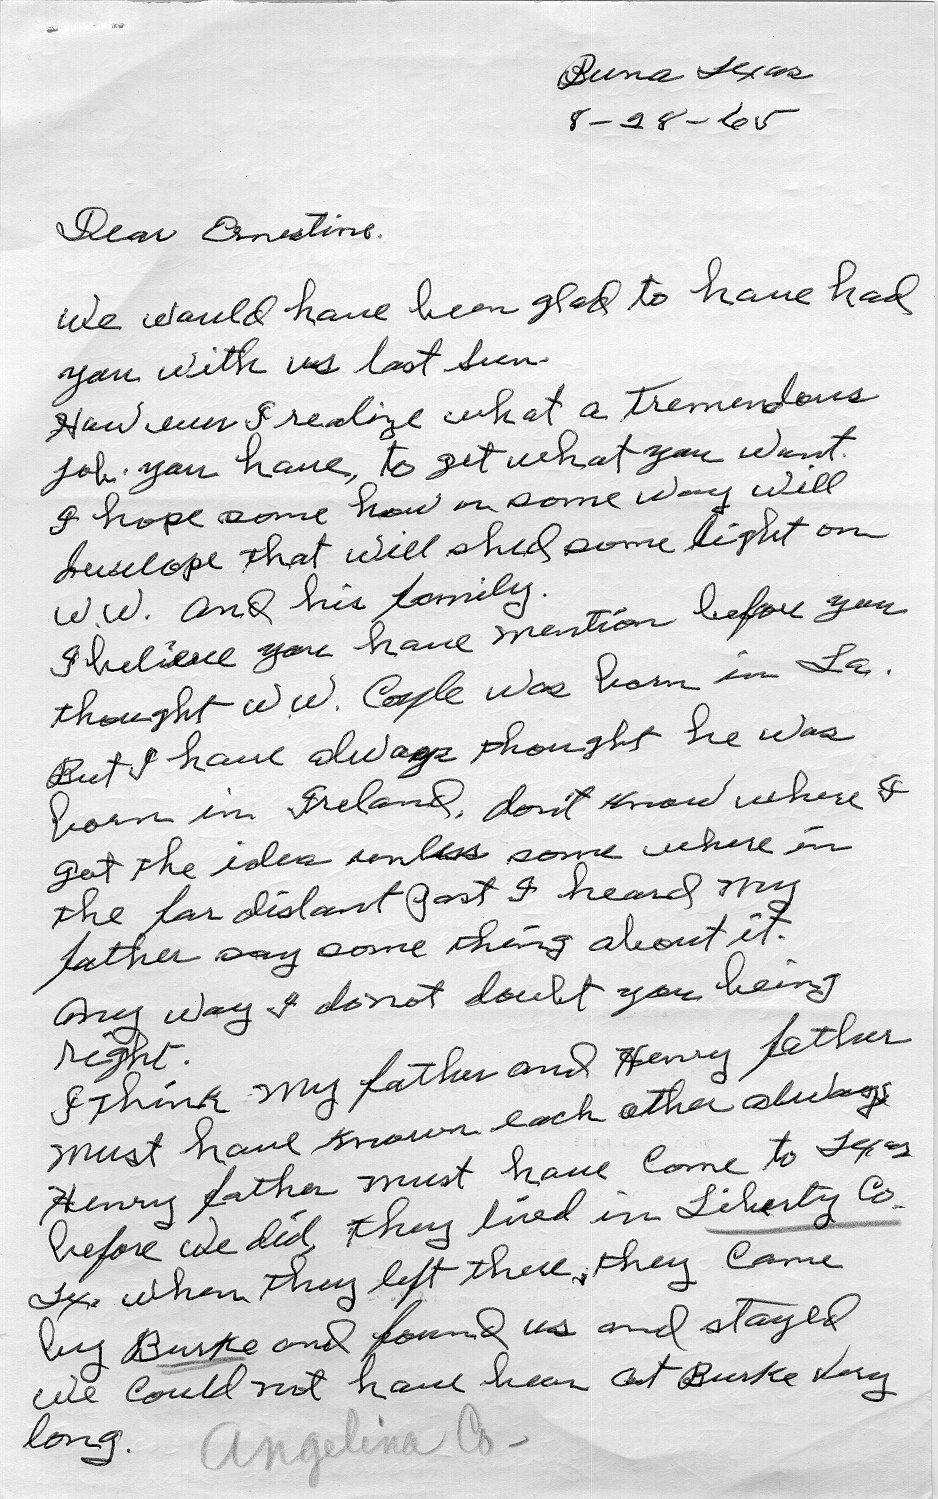 Buna Texas
8-28-65
Dear Ernestine.
We would have been glad to have had
you with us last Sun.
How ever I realize what a tremendous
job. you have, to get what you want.
I hope some how or some way will
develope that will shed some light on
W.W. and his family.
I believe you have mention before you
thought W W. Coyle was born in La.
But I have always thought he was
born in Ireland, don't know where I
got the idea unless some where in
the far distant past I heard my
father say some thing about it.
Any way I do not doubt you being
right.
I think my father and Henry father
must have known each other always
Henry father must have come to Texas
before we did, they lived in Liberty Co.
Tx. when they left there, they came
by Burke and found us and stayed
we could not have been at Burke very
long.
Angelina Co-